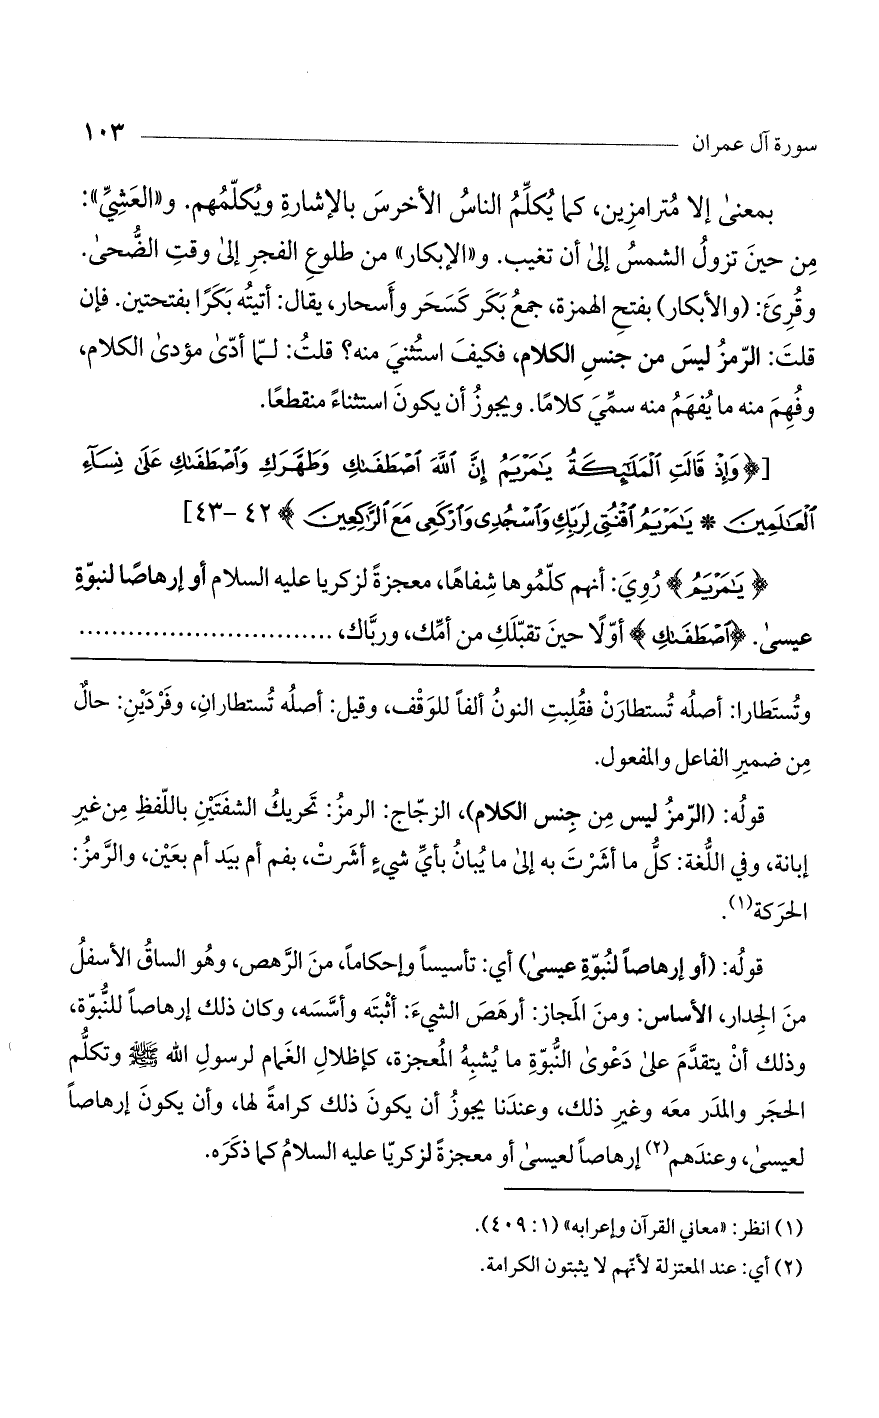 سورة آل عمران ١٠٣
بمعنىٰ إلا مُترامزِين، كما يُكلِّمُ الناسُ الأخرسَ بالإشارةِ ويُكلّمُهم. و«العَشِيِّ»:
مِن حينَ تزولُ الشمسُ إلىٰ أن تغيب. و«الإبكار» من طلوعِ الفجرِ إلىٰ وقتِ الضُّحىٰ.
وقُرِئَ: (والأبكار) بفتحِ الهمزة، جمعُ بَكَر كَسَحَر وأَسحار، يقال: أتيتُه بَكَرًا بفتحتين. فإن
قلتَ: الرّمزُ ليسَ من جنسِ الكلام، فكيفَ استُثنيَ منه؟ قلتُ: لـمّا أدّىٰ مؤدىٰ الكلام،
وفُهِمَ منه ما يُفهَمُ منه سمِّيَ كلامًا. ويجوزُ أن يكونَ استثناءً منقطعًا.
[﴿وَإِذْ قَالَتِ ٱلْمَلَٰٓئِكَةُ يَٰمَرْيَمُ إِنَّ ٱللَّهَ ٱصْطَفَىٰكِ وَطَهَّرَكِ وَٱصْطَفَىٰكِ عَلَىٰ نِسَآءِ
ٱلْعَٰلَمِينَ * يَٰمَرْيَمُ ٱقْنُتِى لِرَبِّكِ وَٱسْجُدِى وَٱرْكَعِى مَعَ ٱلرَّٰكِعِينَ﴾ ٤٢ -٤٣]
﴿يَٰمَرْيَمُ﴾ رُوِيَ: أنهم كلّمُوها شِفاهًا، معجزةً لزكريا عليه السلام أو إرهاصًا لنبوّةِ
عيسىٰ. ﴿ٱصْطَفَىٰكِ﴾ أوّلًا حينَ تقبّلَكِ من أمِّك، وربّاك، ...............................
وتُستَطارا: أصلُه تُستطارَنْ فقُلِبتِ النونُ ألفاً للوَقْف، وقيل: أصلُه تُستطارانِ، وفَرْدَيْنِ: حالٌ
مِن ضميرِ الفاعل والمفعول.
قولُه: (الرّمزُ ليس مِن جِنس الكلام)، الزجّاج: الرمزُ: تَحريكُ الشفتَيْنِ باللّفظِ مِن غيرِ
إبانة، وفي اللُّغة: كلُّ ما أشَرْتَ به إلىٰ ما يُبانُ بأيِّ شيءٍ أشَرتْ، بفم أم بيَد أم بعَيْن، والرَّمزُ:
الحَركة(١).
قولُه: (أو إرهاصاً لنُبوّةِ عيسىٰ) أي: تأسيساً وإحكاماً، منَ الرَّهص، وهُو الساقُ الأسفلُ
منَ الجِدار، الأساس: ومنَ المَجاز: أرهَصَ الشيءَ: أثْبتَه وأسَّسَه، وكان ذلك إرهاصاً للنُّبوّة،
وذلك أنْ يتقدَّمَ علىٰ دَعْوىٰ النُّبوّةِ ما يُشبِهُ المُعجزة، كإظلالِ الغَمام لرسولِ الله ﷺ وتكلُّم
الحجَر والمدَر معَه وغيرِ ذلك، وعندَنا يجوزُ أن يكونَ ذلك كرامةً لها، وأن يكونَ إرهاصاً
لعيسىٰ، وعندَهم(٢) إرهاصاً لعيسىٰ أو معجزةً لزكريّا عليه السلامُ كما ذكَرَه.
(١) انظر: «معاني القرآن وإعرابه» (١: ٤٠٩).
(٢) أي: عند المعتزلة لأنّهم لا يثبتون الكرامة.